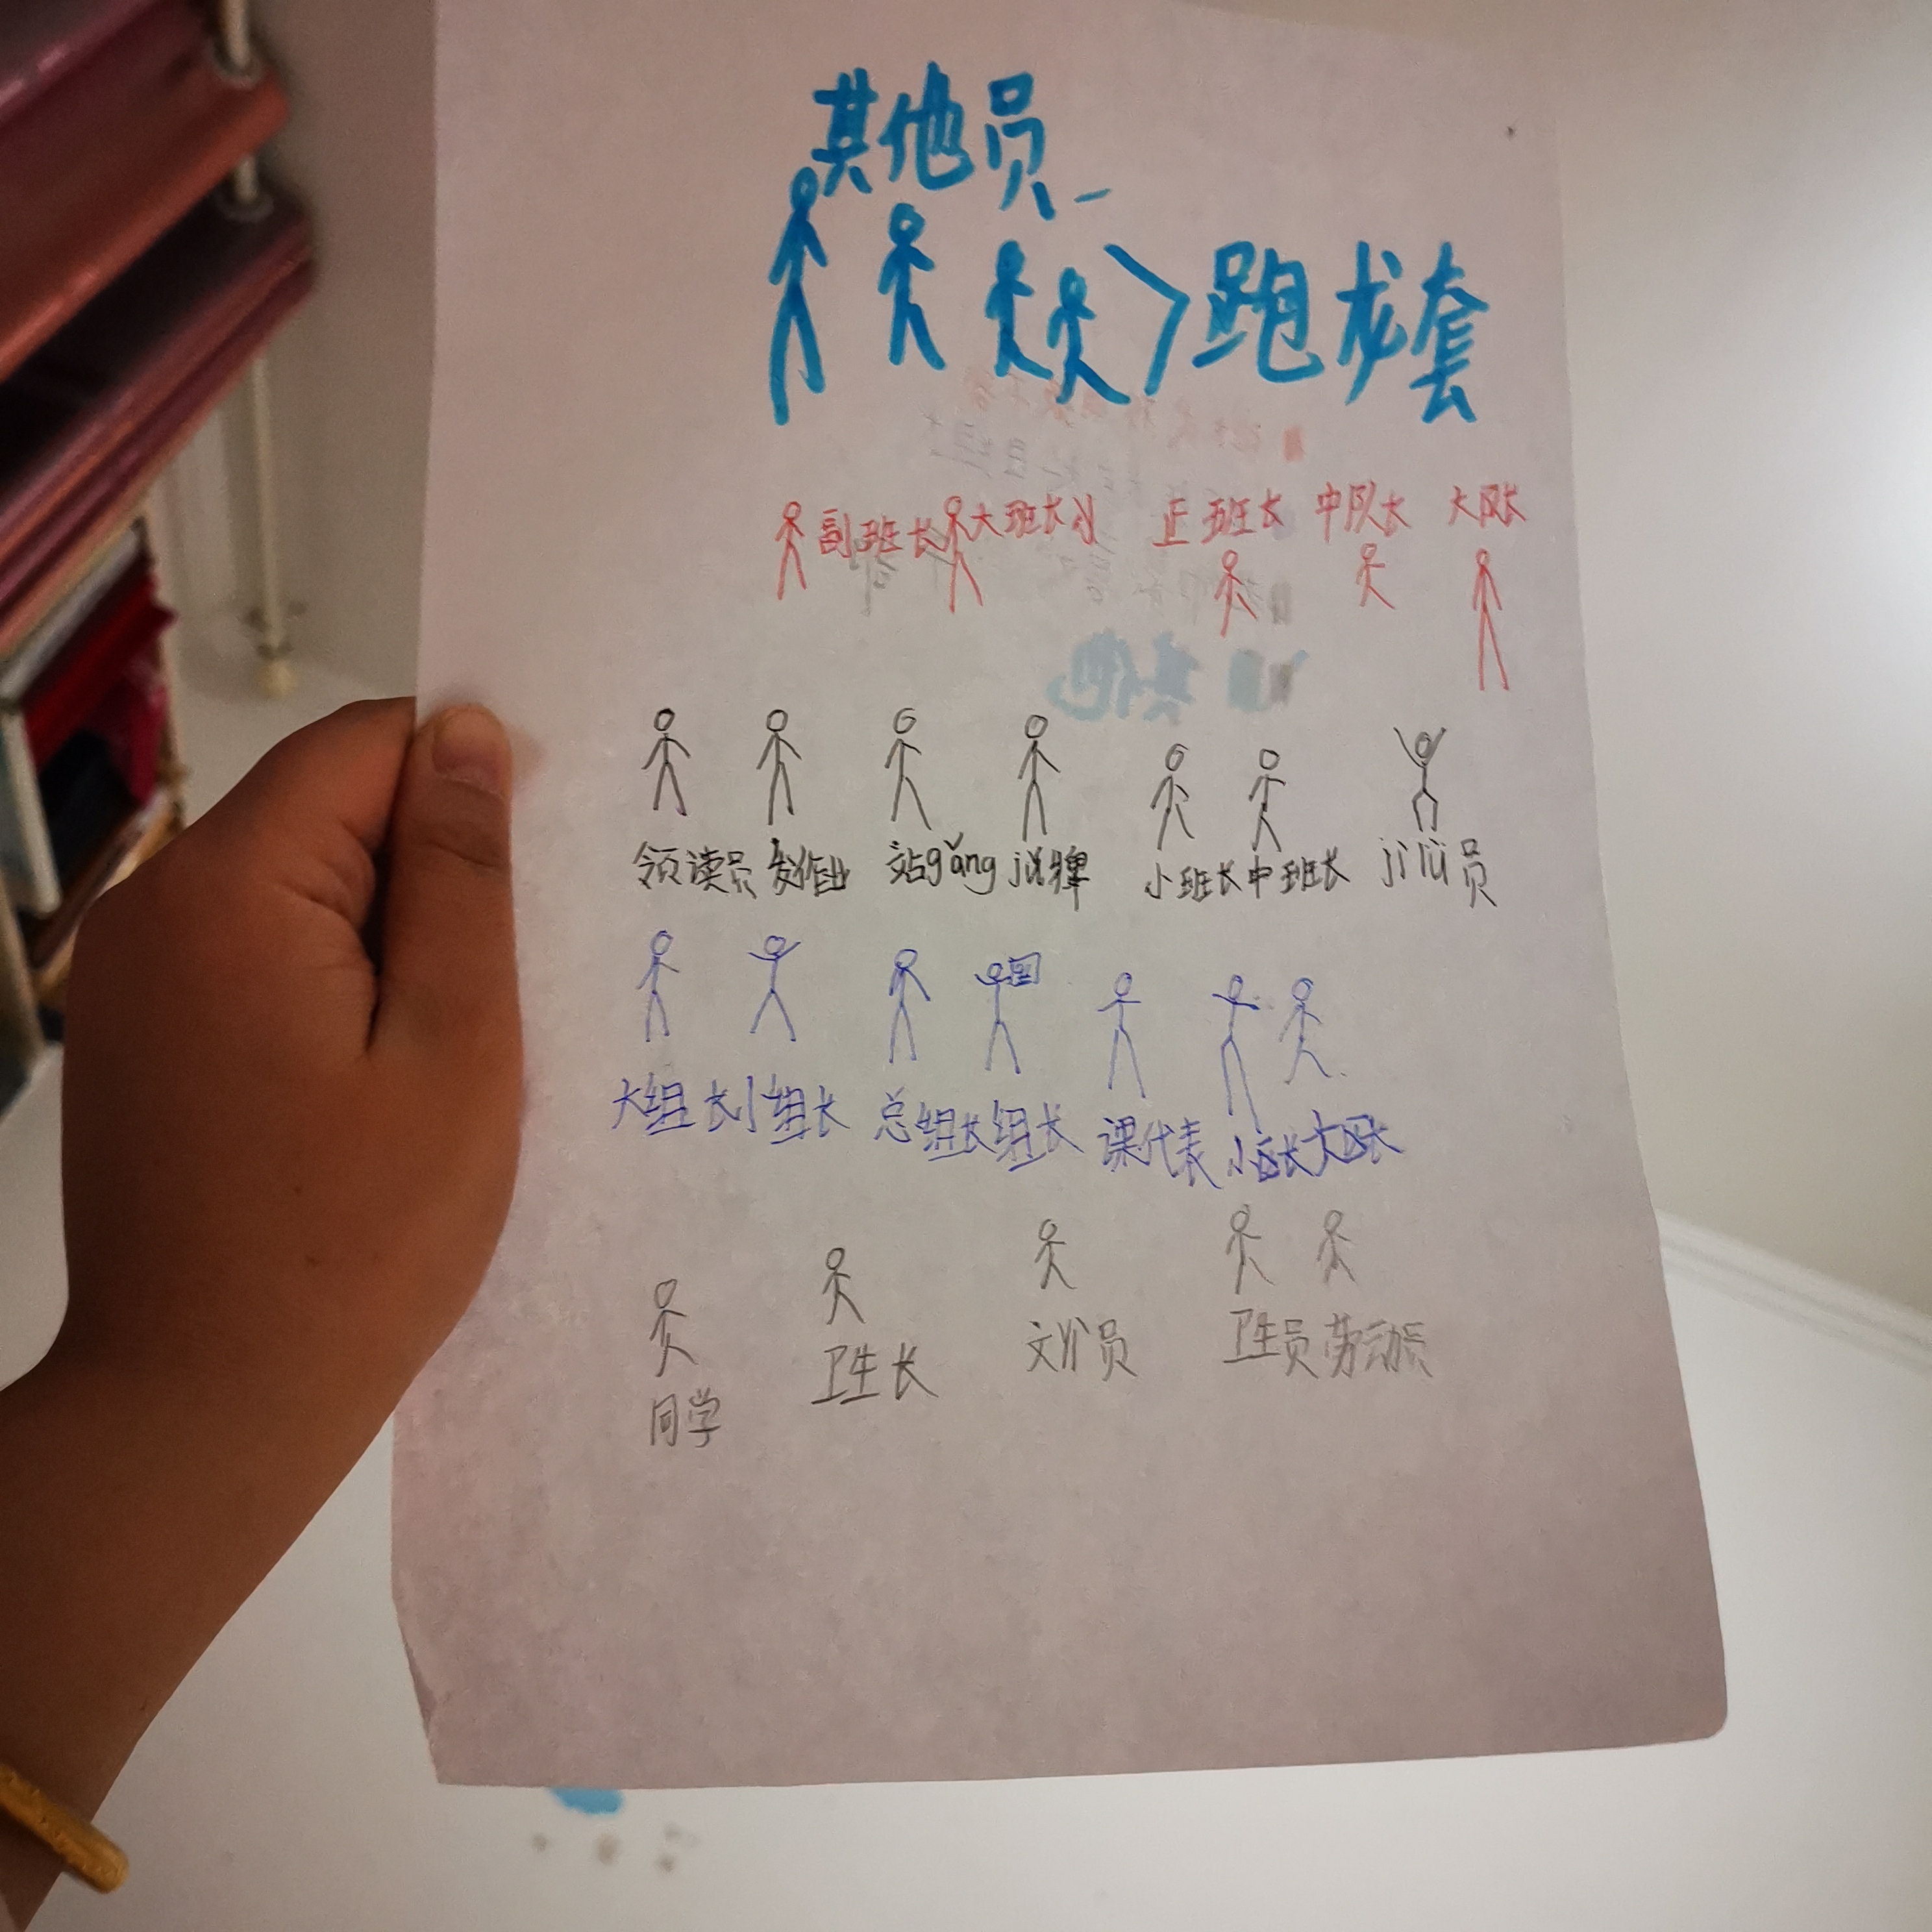 其他员
跑龙套
副班长 大班长 正班长 中队长 大队长
领读员 发作业 站gǎng jǔ牌 小班长 中班长 jì lǜ员
大组长 小组长 总组长 组长 课代表 小区长 大区长
同学 卫生长 员 卫生员 劳动员